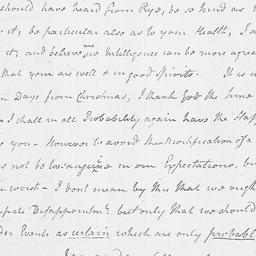 should have heard from Rye, be so kind as
it, be particular also as to your Health, I a
it, and believe me no Intelligence can be more agree
that you are well & in good Spirits. It is n
n Days from Christmas, I thank God the time
I shall in all Probability again have the Hap
g you - However to avoid the Mortification of a
s not be too sanguine in our Expectations, bu
e worst - I dont mean by this that we ough
ipate Disappointmt. but only that we should
der Events as certain which are only probabl